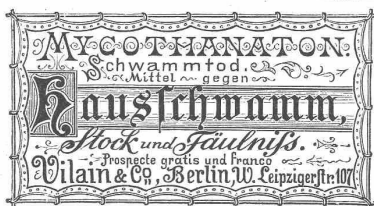 MYCOTHANATON.
Schwammtod.
Mittel gegen
Hausſchwamm,
Stock und Fäulniſs.
Prospecte gratis und franco
Vilain & Co., Berlin, W. Leipzigerſtr. 107